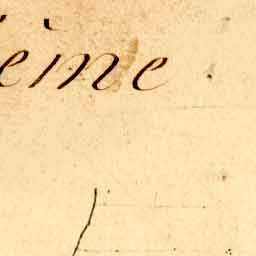 ème